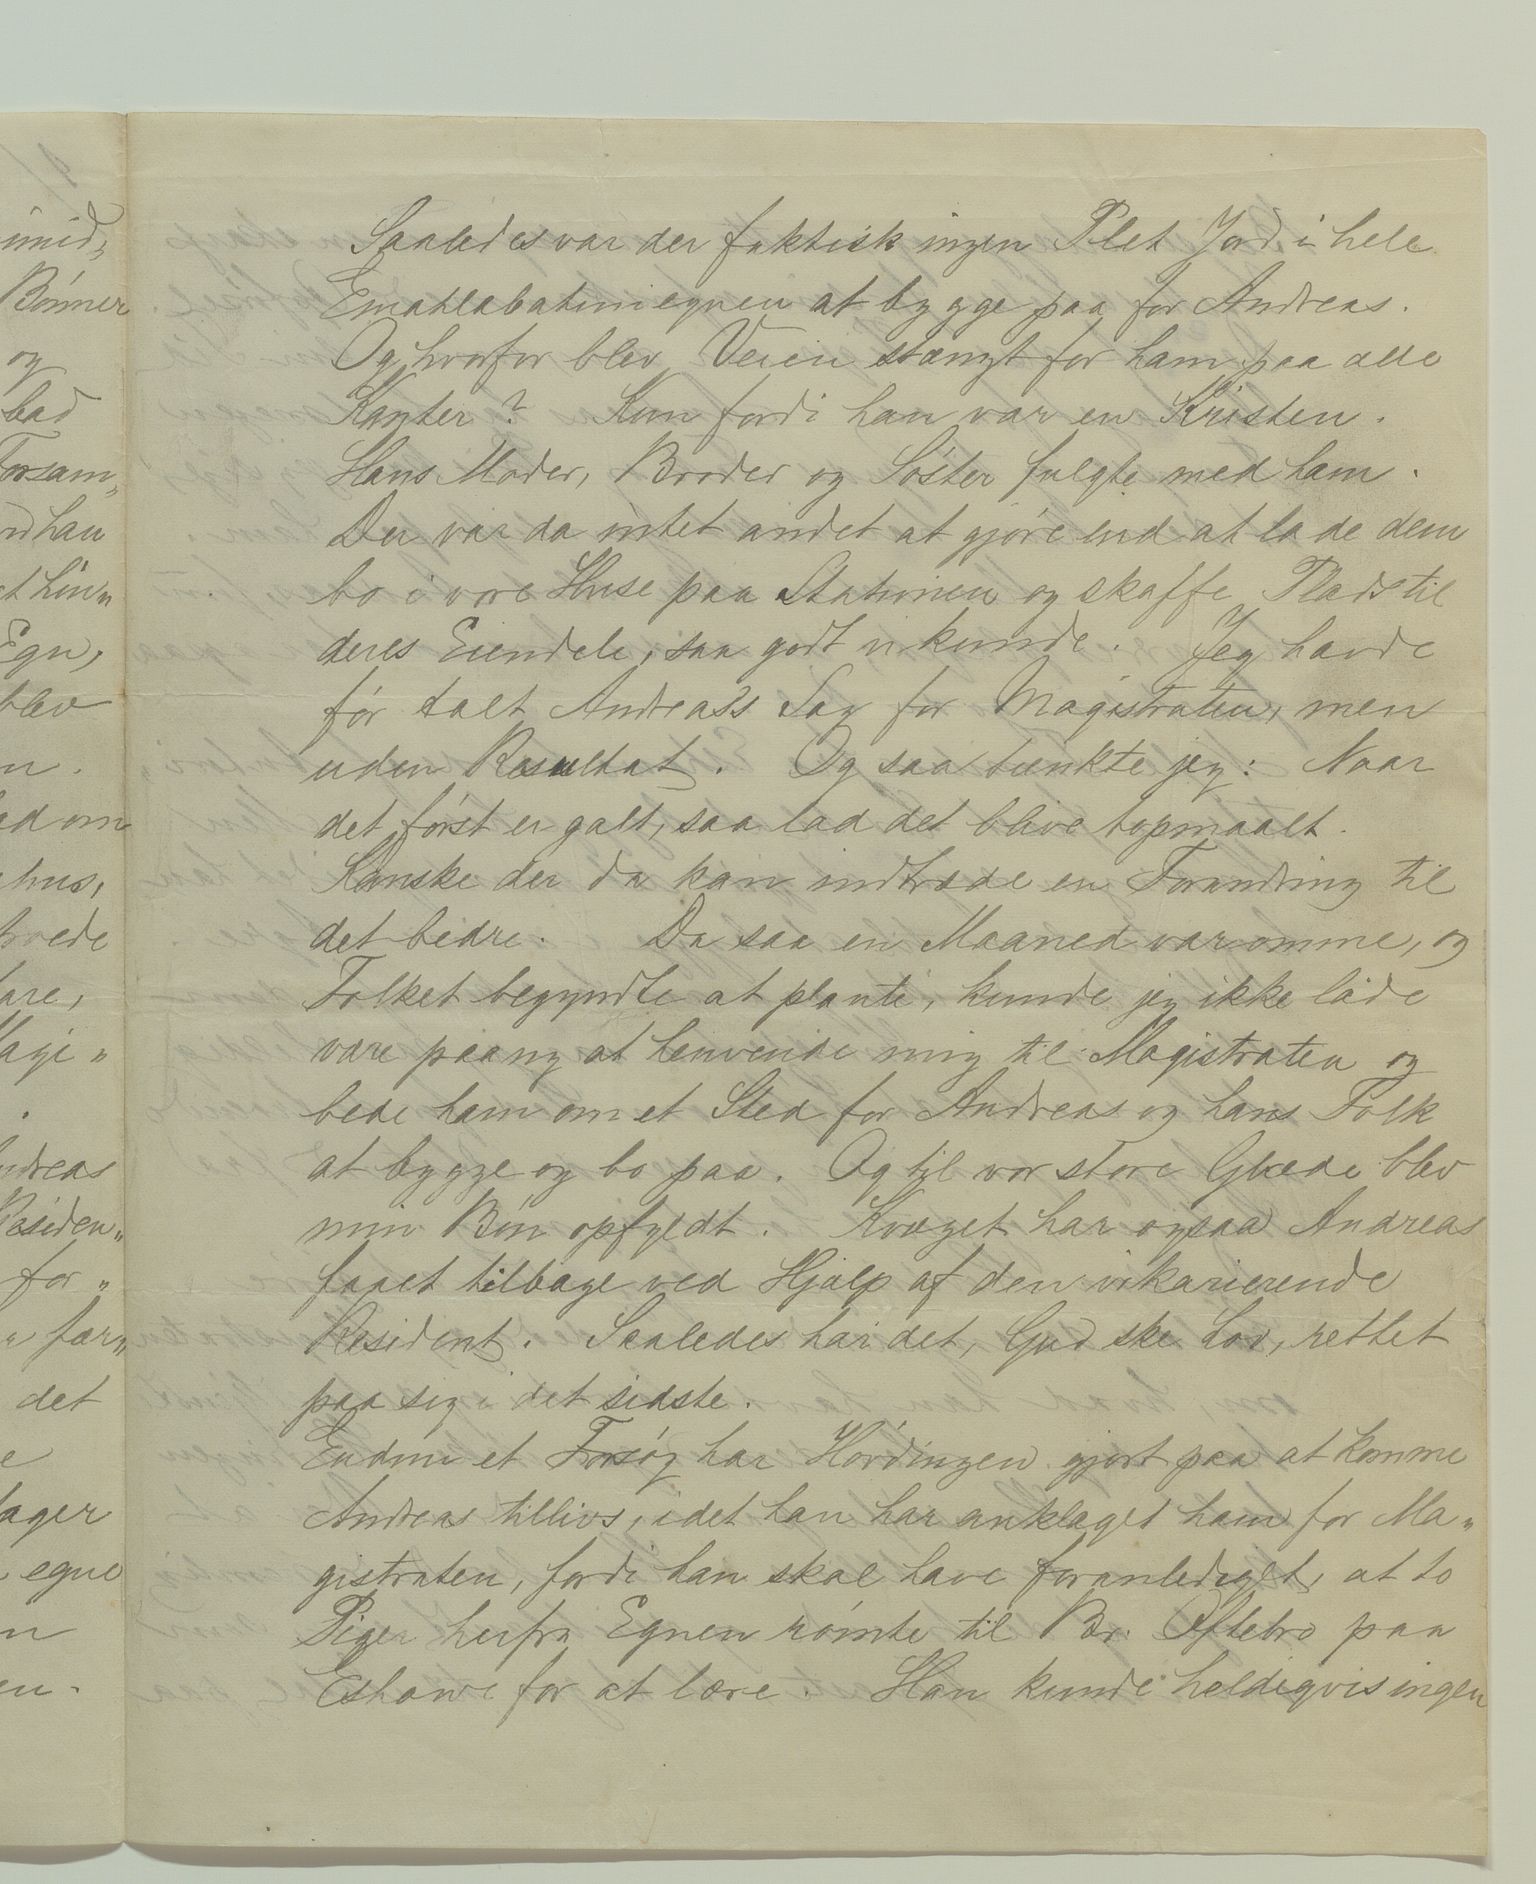 imid„
Bønner
og
bad
Forsam„
han
Egn,
blev
n.
ad om
hus,
are,
Magi„
.
Andreas
Residen„
for„
fær„
det
e
ager
egne
n
en.
Saaledes var der faktisk ingen Plet Jord i hele
Emahlabatiniegnen at bygge paa for Andreas.
Og hvorfor blev Veien stængt for ham paa alle
Kanter? Kun fordi han var en Kristen.
Hans Moder, Broder og Søster fulgte med ham.
Der var da intet andet at gjøre end at lade dem
bo i vore Huse paa Stationen og skaffe Plads til
deres Eiendele, saa godt vi kunde. Jeg havde
før talt Andreas's Sag for Magistraten, men
uden Resultat. Og saa tænkte jeg: Naar
det først er galt, saa lad det blive topmaalt.
Kanske der da kan indtræde en Forandring til
det bedre. Da saa en Maaned var omme, og
Folket begyndte at plante, kunde jeg ikke lade
være paany at henvende mig til Magistraten og
bede ham om et Sted for Andreas og hans Folk
at bygge og bo paa. Og til vor store Glæde blev
min Bøn opfyldt. Kvæget har ogsaa Andreas
faaet tilbage ved Hjælp af den vikarierende
Resident. Saaledes har det, Gud ske Lov, rettet
paa sig i det sidste.
Endnu et Forsøg har Høvdingen gjort paa at komme
Andreas tillivs, idet han har anklaget ham for Ma„
gistraten, fordi han skal have foranlediget, at to
Piger herfra Egnen rømte til Br. Oftebro paa
Eshowe for at lære. Han kunde heldigvis ingen